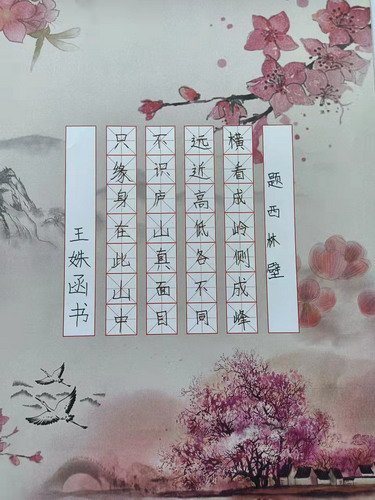 题西林壁
横看成岭侧成峰
远近高低各不同
不识庐山真面目
只缘身在此山中
王姝函书